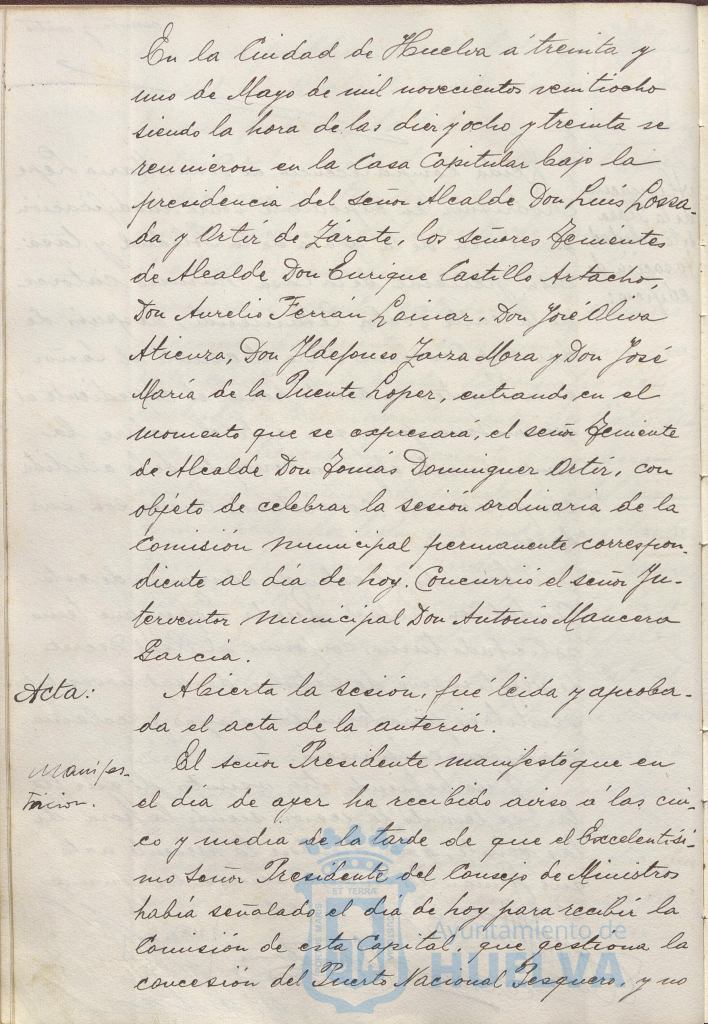 En la Ciudad de Huelva á treinta y
uno de Mayo de mil novecientos veintiocho
siendo la hora de las diez y ocho y treinta se
reunieron en la Casa Capitular bajo la
presidencia del señor Alcalde Don Luis Lossa-
da y Ortíz de Zárate, los señores Tenientes
de Alcalde Don Enrique Castillo Artacho,
Don Aurelio Ferrán Lainar, Don José Oliva
Atienza, Don Ildefonso Zarza Mora y Don José
María de la Puente Lopez, entrando en el
momento que se expresará, el señor Teniente
de Alcalde Don Tomás Dominguez Ortíz, con
objeto de celebrar la sesión ordinaria de la
Comisión municipal permanente correspon-
diente al día de hoy. Concurrió el señor In-
terventor municipal Don Antonio Mancera
García.
Acta: Abierta la sesión, fué leida y aproba-
da el acta de la anteriór.
Manifes- El señor Presidente manifestó que en
el día de ayer ha recibido aviso á las cin-
co y media de la tarde de que el Excelentísi-
mo Señor Presidente del Consejo de Ministros
había señalado el día de hoy para recibir la
Comisión de esta Capital, que gestiona la
concesión del Puerto Nacional Pesquero, y no
ET TERRÆ
Ayuntamiento de
HUELVA